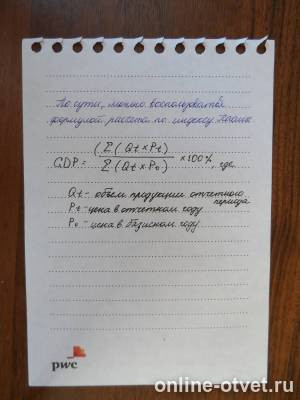 По сути, можно воспользоваться
формулой расчета по индексу Пааше
GDP = (Σ(Qt×Pt)) / Σ(Qt×P₀) ×100%, где
Qt - объем продукции отчетного
периода
Pt - цена в отчетном году
P₀ - цена в базисном году
pwc
online-otvet.ru